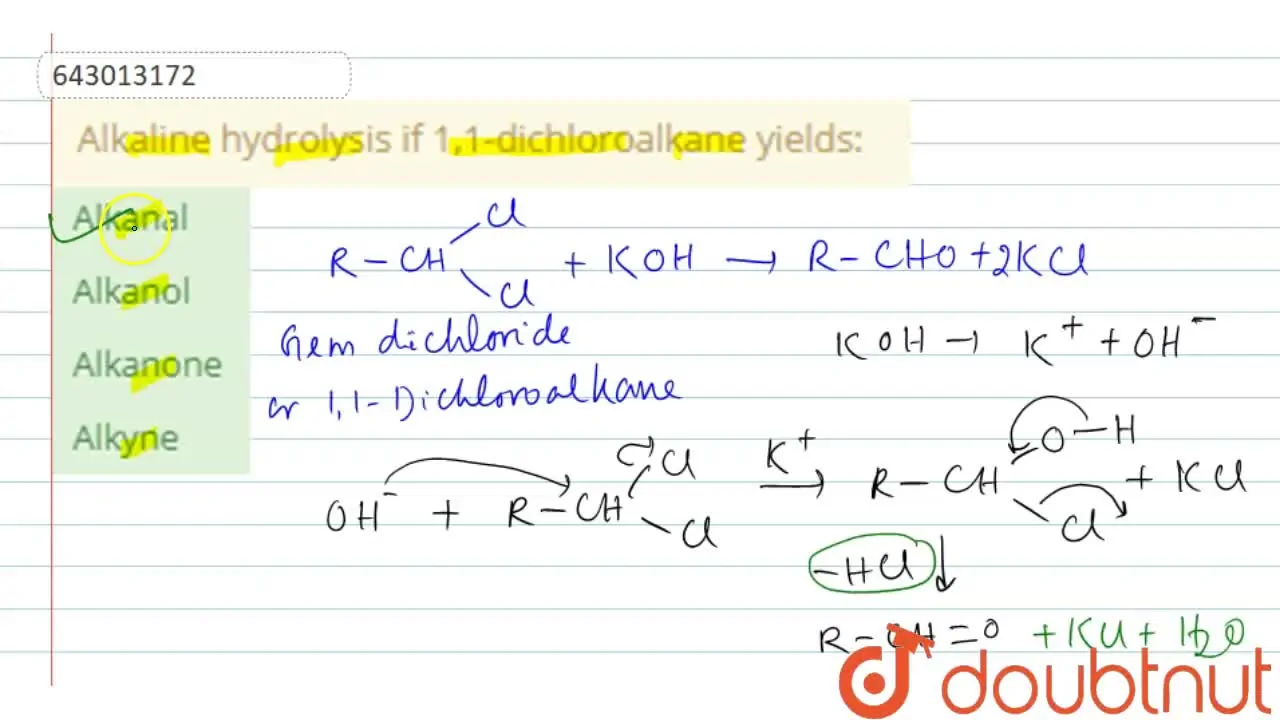 643013172
Alkaline hydrolysis if 1,1-dichloroalkane yields:
Alkanal
Alkanol
Alkanone
Alkyne
Cl
R - CH + KOH → R - CHO + 2KCl
Cl
Gem dichloride
or 1,1-Dichloroalkane
KOH → K⁺ + OH⁻
OH⁻ + R - CH
Cl
Cl
K⁺
→
R - CH
O - H
Cl
+ KCl
-HCl ↓
R - CH = O + KCl + H₂O
doubtnut